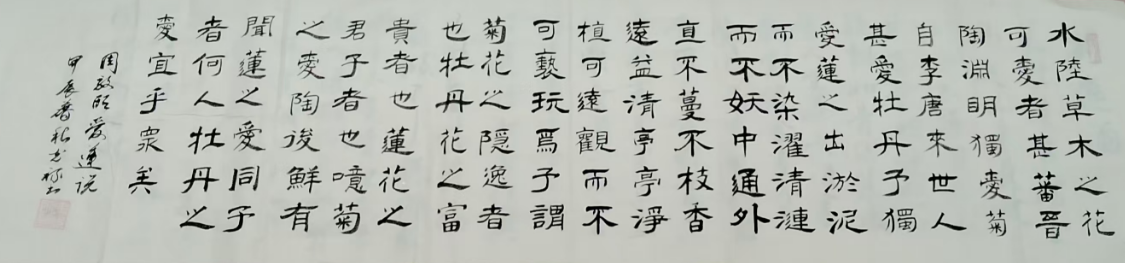 水陸草木之花
可愛者甚蕃晉
陶淵明獨愛菊
自李唐來世人
甚愛牡丹予獨
愛蓮之出淤泥
而不染濯清漣
而不妖中通外
直不蔓不枝香
遠益清亭亭淨
植可遠觀而不
可褻玩焉予謂
菊花之隱逸者
也牡丹花之富
貴者也蓮花之
君子者也噫菊
之愛陶後鮮有
聞蓮之愛同予
者何人牡丹之
愛宜乎眾矣
周敦頤愛蓮說
甲辰春